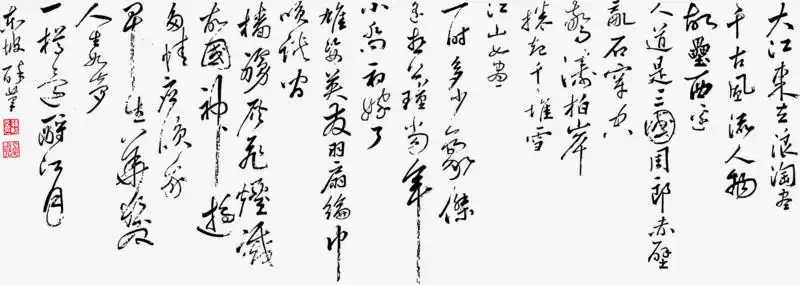 大江東去浪淘盡
千古風流人物
故壘西邊
人道是三國周郎赤壁
亂石穿空
驚濤拍岸
捲起千堆雪
江山如畫
一時多少豪傑
遙想公瑾當年
小喬初嫁了
雄姿英發羽扇綸巾
笑談間
檣艣灰飛煙滅
故國神遊
多情應笑我
早生華髮
人生如夢
一樽還酹江月
東坡